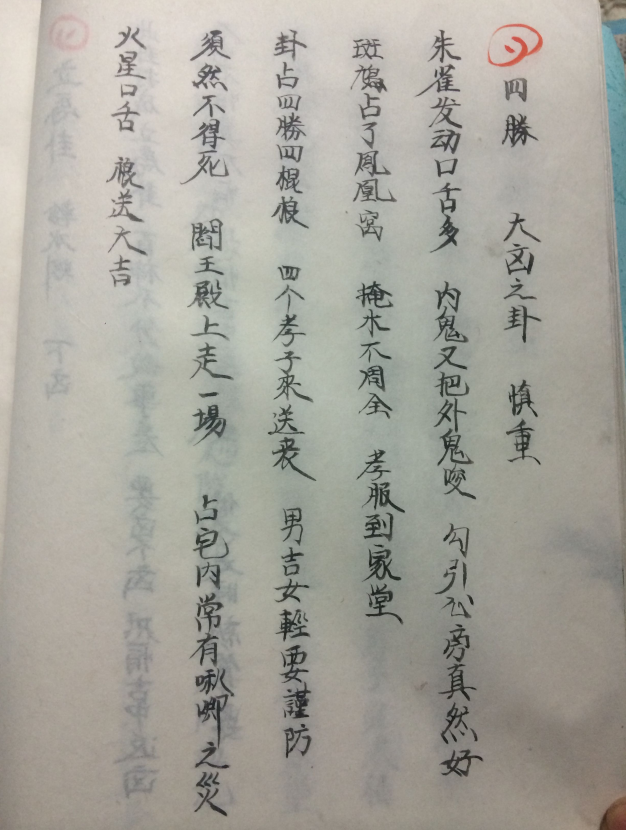 四勝 大凶之卦 慎重
朱雀发动口舌多 内鬼又把外鬼咬 勾引公旁真然好
斑鸠占了鳳凰窩 掩水不周全 孝服到家堂
卦占四勝四棍狼 四个孝子來送丧 男吉女輕要謹防
須然不得死 閻王殿上走一場 占宅内常有啾唧之災
火星口舌 禳送大吉